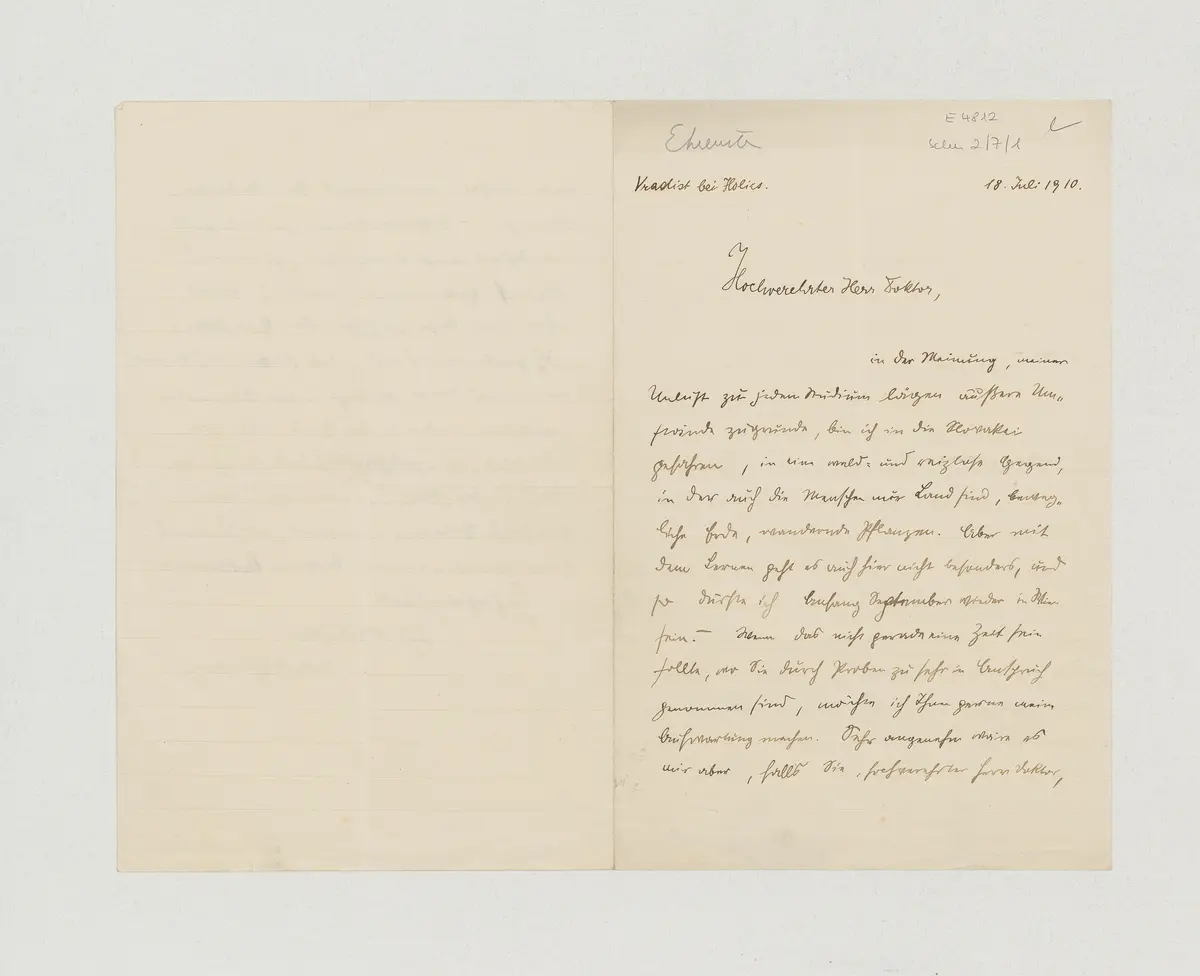 Ehrenstein
E 4812
2/7/1
Vradist bei Holics.
18. Juli 1910.
Hochverehrter Herr Doktor,
in der Meinung, meiner
Unlust zu jedem Studium lägen äußere Um-
stände zugrunde, bin ich in die Slovakei
gefahren, in eine wald- und reizlose Gegend,
in der auch die Menschen nur Land sind, beweg-
liche Erde, wandernde Pflanzen. Aber mit
dem Lernen geht es auch hier nicht besonders, und
so dürfte ich Anfang September wieder in Wien
sein. – Wenn das nicht gerade eine Zeit sein
sollte, wo Sie durch Proben zu sehr in Anspruch
genommen sind, möchte ich Ihnen gerne meine
Aufwartung machen. Sehr angenehm wäre es
mir aber, falls Sie, hochverehrter Herr Doktor,